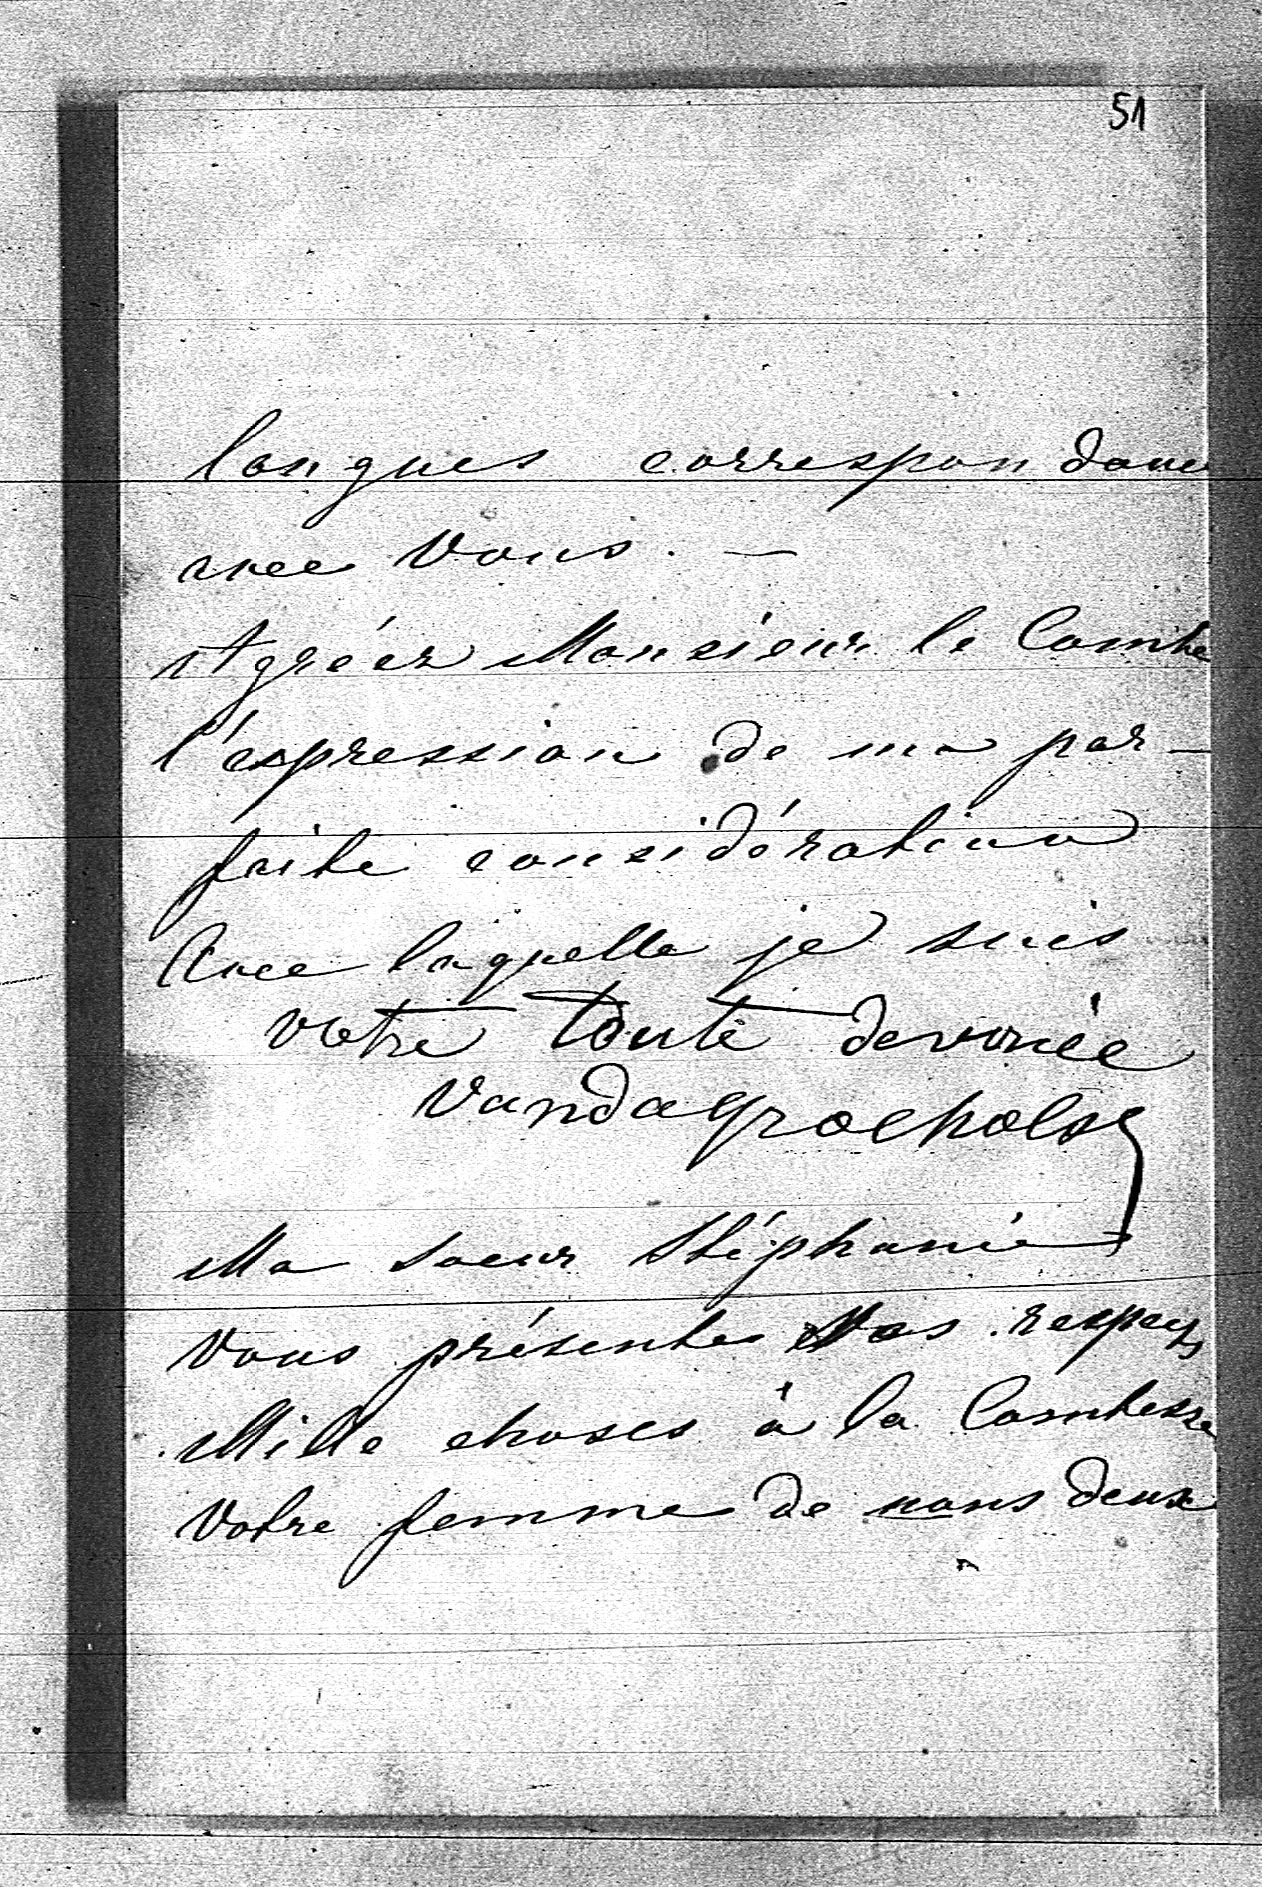 51
longues correspondance
avec Vous. —
Agréez Monsieur le Comte
l'expression de ma par-
faite considération
Avec laquelle je suis
votre toute devouée
Vanda Grocholsy
Ma soeur Stéphanie
Vous présente ses respects
Mille choses à la Comtesse
Votre femme de nous deux